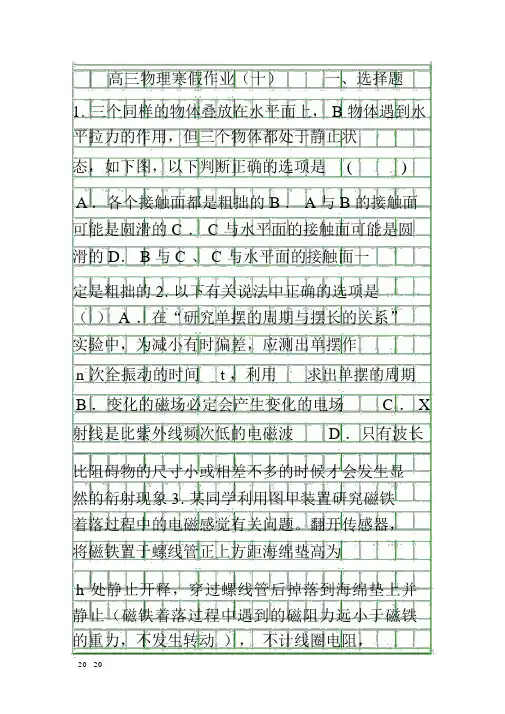 高三物理寒假作业（十） 一、选择题
1. 三个同样的物体叠放在水平面上， B 物体遇到水
平拉力的作用，但三个物体都处于静止状
态，如下图，以下判断正确的选项是 ( )
A ．各个接触面都是粗拙的 B ． A 与 B 的接触面
可能是圆滑的 C ． C 与水平面的接触面可能是圆
滑的 D． B 与 C 、 C 与水平面的接触面一
定是粗拙的 2. 以下有关说法中正确的选项是
（ ） A ．在“研究单摆的周期与摆长的关系”
实验中，为减小有时偏差，应测出单摆作
n 次全振动的时间 t ，利用 求出单摆的周期
B ．变化的磁场必定会产生变化的电场 C ． X
射线是比紫外线频次低的电磁波 D ．只有波长
比阻碍物的尺寸小或相差不多的时候才会发生显
然的衍射现象 3. 某同学利用图甲装置研究磁铁
着落过程中的电磁感觉有关问题。翻开传感器，
将磁铁置于螺线管正上方距海绵垫高为
h 处静止开释，穿过螺线管后掉落到海绵垫上并
静止（磁铁着落过程中遇到的磁阻力远小于磁铁
的重力，不发生转动 ）， 不计线圈电阻，
20 20